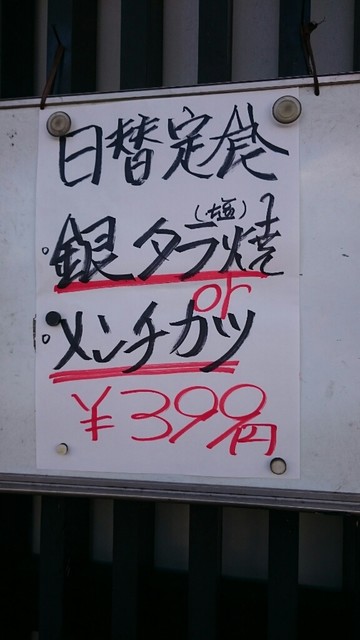 日替定食
(塩)
・銀タラ焼
or
・メンチカツ
¥399円